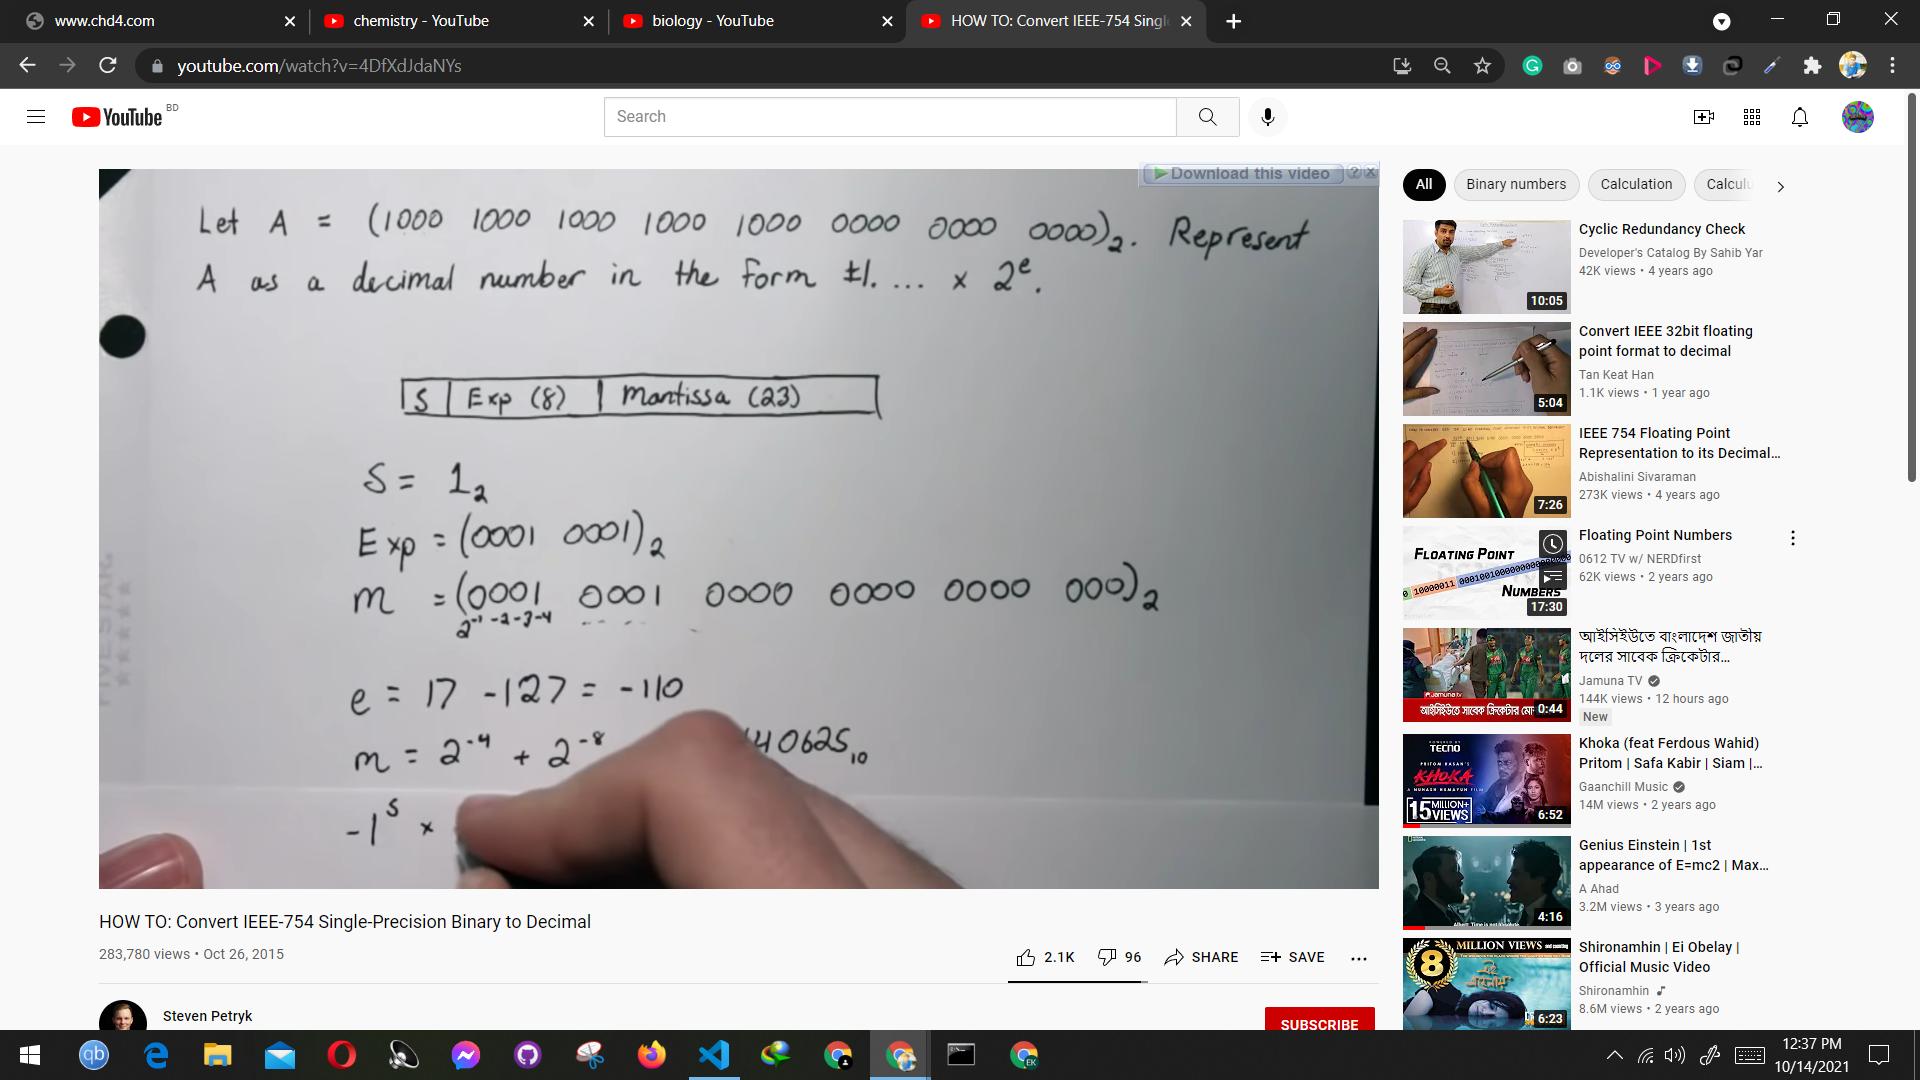 www.chd4.com
chemistry - YouTube
biology - YouTube
HOW TO: Convert IEEE-754 Singl
youtube.com/watch?v=4DfXdJdaNYs
YouTube BD
Search
Download this video
Let A = (1000 1000 1000 1000 1000 0000 0000 0000)₂. Represent
A as a decimal number in the form ±1. ... × 2ᵉ.
S | Exp (8) | Mantissa (23)
S = 1₂
Exp = (0001 0001)₂
m = (0001 0001 0000 0000 0000 000)₂
2⁻¹ -2 -3 -4
e = 17 - 127 = -110
m = 2⁻⁴ + 2⁻⁸ 40625₁₀
-1ˢ ×
HOW TO: Convert IEEE-754 Single-Precision Binary to Decimal
283,780 views • Oct 26, 2015
2.1K
96
SHARE
SAVE
Steven Petryk
SUBSCRIBE
All
Binary numbers
Calculation
Calculu
Cyclic Redundancy Check
Developer's Catalog By Sahib Yar
42K views • 4 years ago
10:05
Convert IEEE 32bit floating
point format to decimal
Tan Keat Han
1.1K views • 1 year ago
5:04
IEEE 754 Floating Point
Representation to its Decimal...
Abishalini Sivaraman
273K views • 4 years ago
7:26
FLOATING POINT
0 10000011 0001001000000000000
NUMBERS
17:30
Floating Point Numbers
0612 TV w/ NERDfirst
62K views • 2 years ago
আইসিইউতে বাংলাদেশ জাতীয়
দলের সাবেক ক্রিকেটার...
Jamuna TV
144K views • 12 hours ago
New
0:44
Khoka (feat Ferdous Wahid)
Pritom | Safa Kabir | Siam |...
Gaanchill Music
14M views • 2 years ago
TECNO
KHOKA
15 MILLION+
VIEWS
6:52
Genius Einstein | 1st
appearance of E=mc2 | Max...
A Ahad
3.2M views • 3 years ago
4:16
8 MILLION VIEWS
Shironamhin | Ei Obelay |
Official Music Video
Shironamhin
8.6M views • 2 years ago
6:23
12:37 PM
10/14/2021